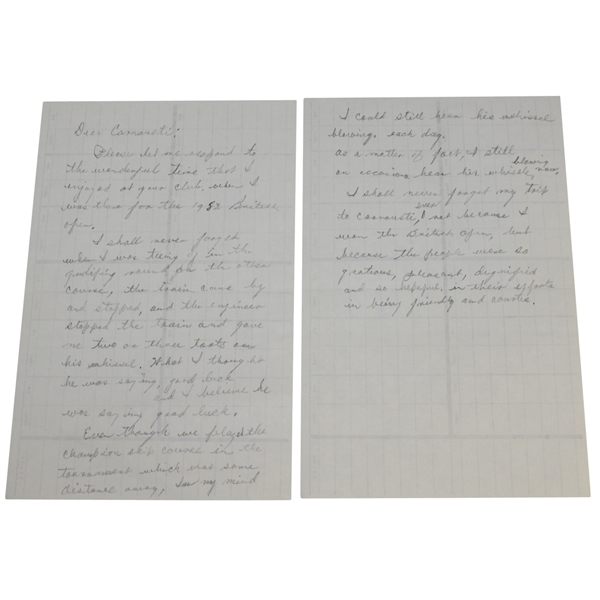 Dear Carnousti:
Please let me respond to
the wonderful time that I
enjoyed at your club, when I
was there for the 1953 British
open.
I shall never forget
when I was teeing off in the
qualifying round on the other
course, the train came by
and stopped, and the engineer
stopped the train and gave
me two or three toots on
his whissel. What I thought
he was saying, good luck
and I believe he
was saying good luck.
Even though we played the
champion ship course in the
tournament which was some
distance away, in my mind
I could still hear his whissel
blowing. each day.
as a matter of fact, I still
on occasion hear his whissle, blowing now,
I shall never forget my trip
to Carnousti, ever not because I
won the British Open, but
because the people were so
gracious, pleasant, dignified
and so helpful in their efforts
in being friendly and courtis.